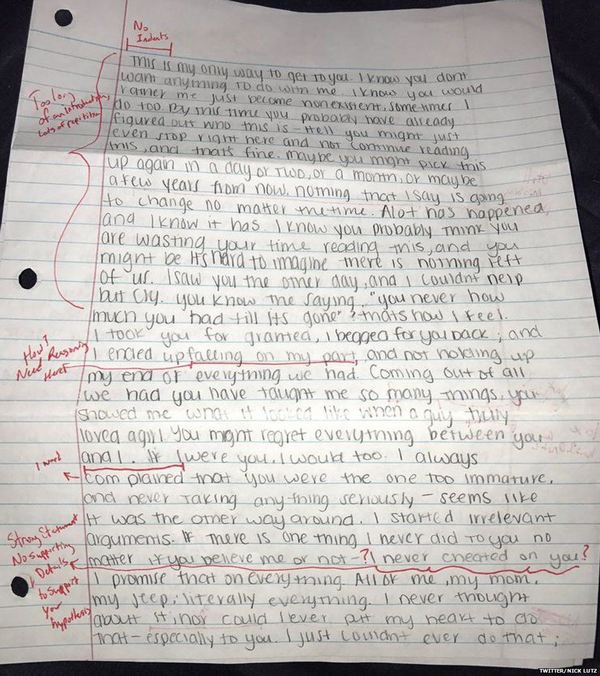 No
Indents
This is my only way to get to you. I know you dont
want anything TO do with me. I know you would
rather me just become nonexistent, sometimes I
do too. By this time you probably have already
figured out who this is - Hell you might just
even stop right here and not continue reading
this, and thats fine. maybe you might pick this
up again in a day or two, or a month, or maybe
a few years from now, nothing that I say is going
to change no matter the time. Alot has happened,
and I know it has. I know you probably think you
are wasting your time reading this, and you
might be. It's hard to imagine there is nothing left
of us. I saw you the other day, and I couldnt help
but cry. you know the saying, "you never how
much you had till its gone" thats how I feel.
I took you for granted, I begged for you back; and
I ended up faceing on my part, and not holding up
my end of everything we had. Coming out of all
we had you have taught me so many things, you
showed me what it looked like when a guy truly
loved a girl. You might regret everything between you
and I. If I were you, I would too. I always
complained that you were the one too immature,
and never taking any-thing seriously - seems like
it was the other way around. I started irrelevant
arguments. IF there is one thing I never did to you no
matter if you believe me or not -? I never cheated on you?
I promise that on everything. All of me, my mom,
my step; literally everything. I never thought
about it, nor could I ever put my heart to do
that - especially to you. I just couldnt ever do that;
Too long
of an introduction,
lots of repitition
How?
Need Reasoning
Here!
Strong Statement
No supporting
Details
to support
your
hypothesis
TWITTER/NICK LUTZ